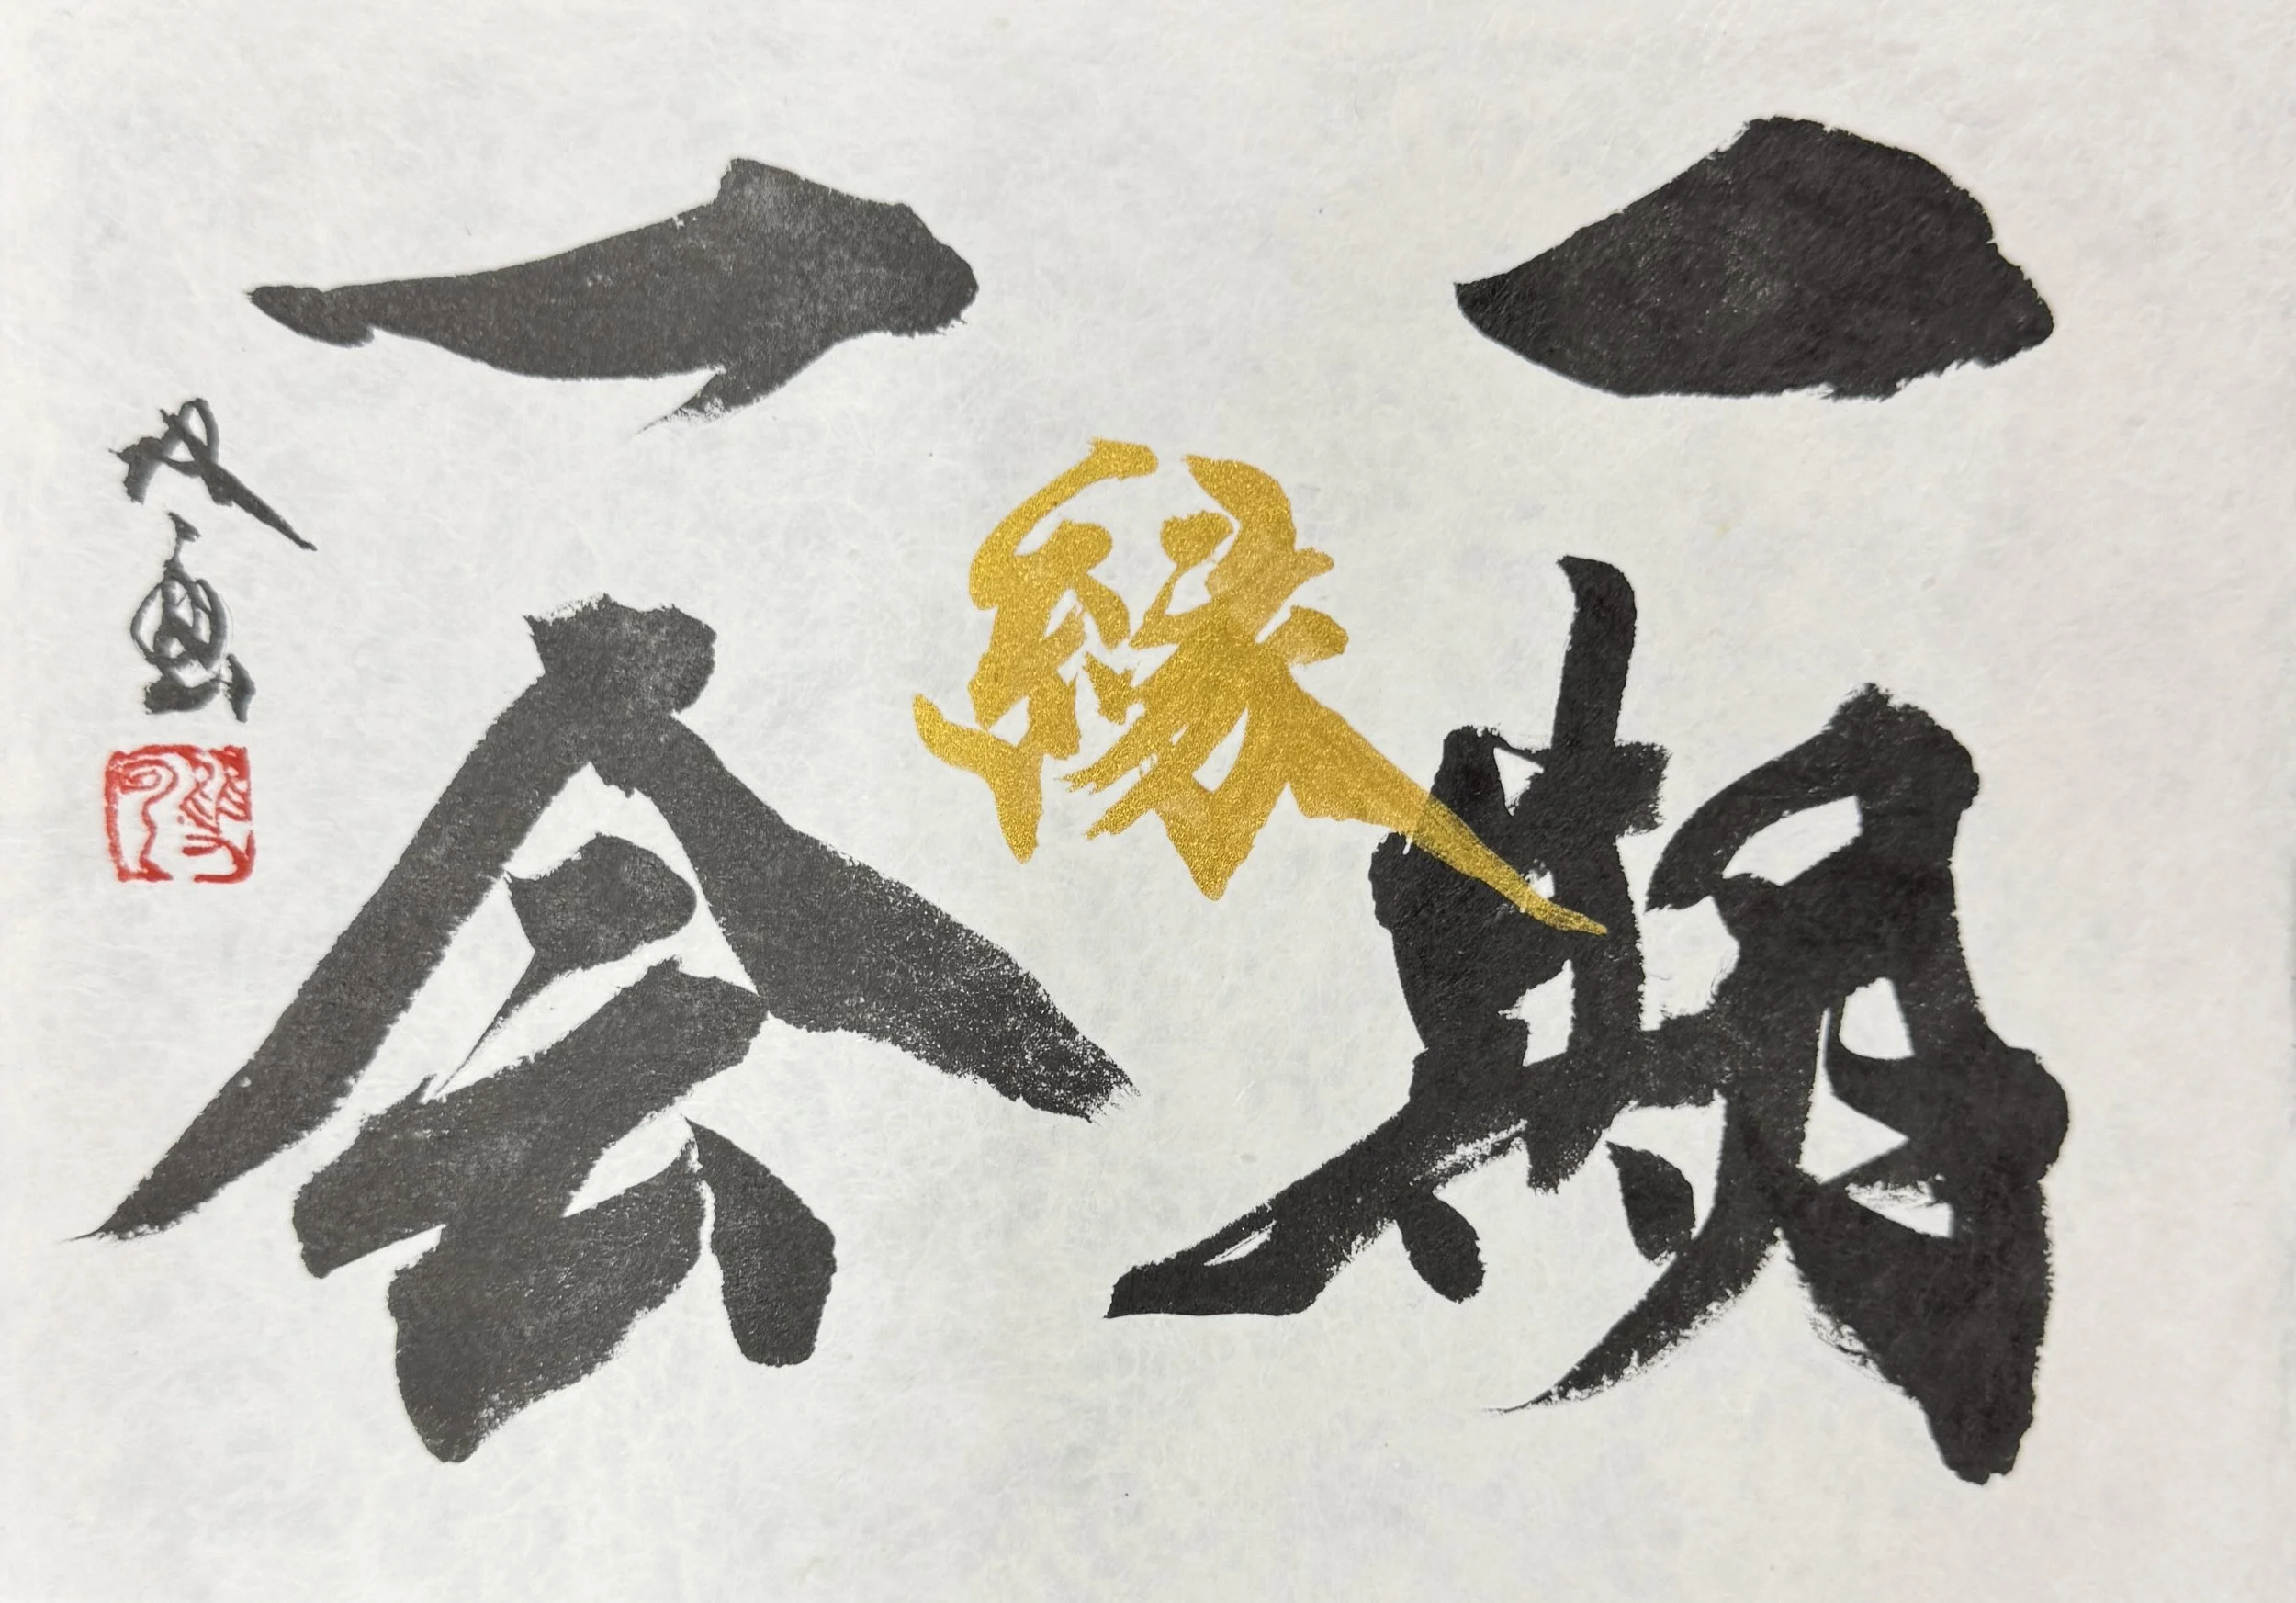 一期
一会
縁